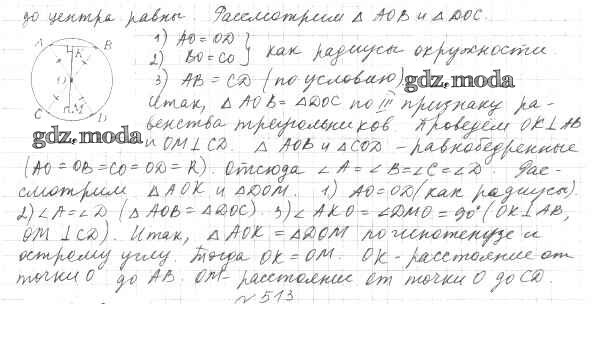 до центра равны. Рассмотрим △ AOB и △ DOC.
1) AO = OD
2) BO = CO } как радиусы окружности
3) AB = CD (по условию)
gdz.moda
Итак, △ AOB = △ DOC по III признаку ра-
венства треугольников. Проведем OK ⊥ AB
и OM ⊥ CD. △ AOB и △ COD - равнобедренные
gdz.moda
(AO = OB = CO = OD = R). Отсюда ∠A = ∠B = ∠C = ∠D. Рас-
смотрим △ AOK и △ DOM. 1) AO = OD (как радиусы).
2) ∠A = ∠D (△ AOB = △ DOC). 3) ∠AKO = ∠DMO = 90° (OK ⊥ AB,
OM ⊥ CD). Итак, △ AOK = △ DOM по гипотенузе и
острому углу. Тогда OK = OM. OK - расстояние от
точки O до AB. OM - расстояние от точки O до CD.
№ 513
A
B
K
O
M
C
D